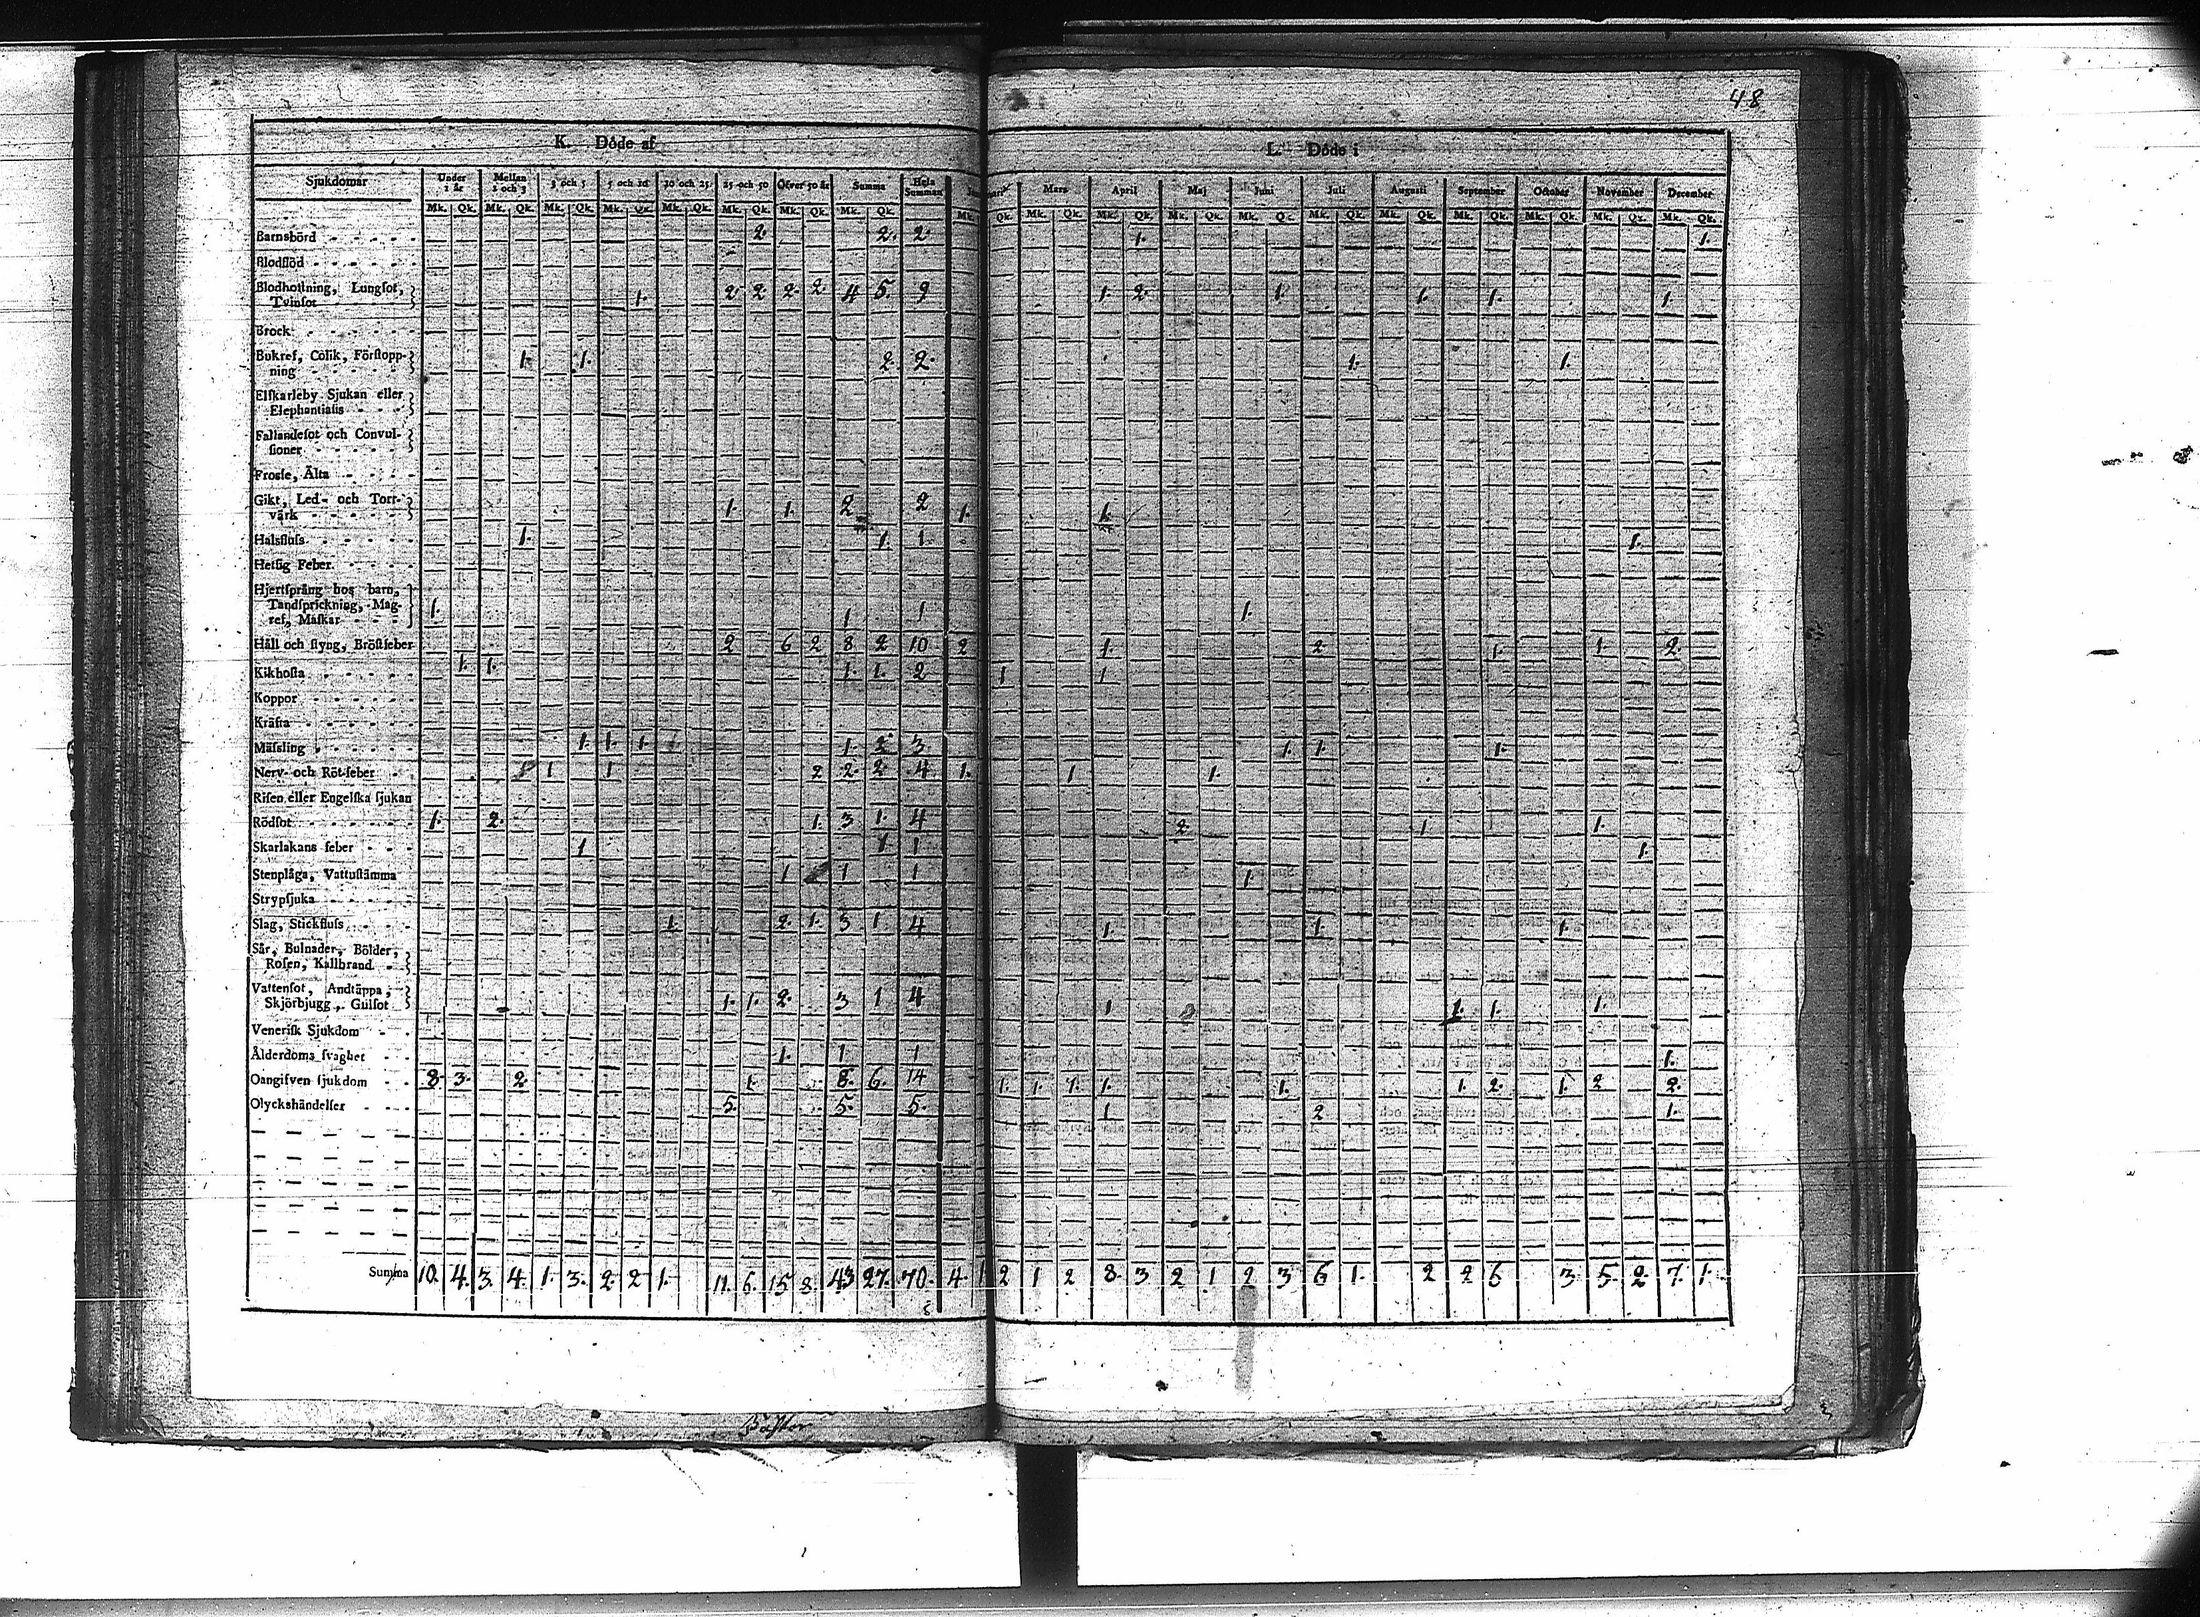 48
K. Döde af
L. Döde i
Sjukdomar Under 1 år Mellan 1 och 3 3 och 5 5 och 10 10 och 25 25 och 50 Öfver 50 år Summa Hela Summan Mars April Maj Juni Juli Augusti September October November December
Mk. Qk. Mk. Qk. Mk. Qk. Mk. Qk. Mk. Qk. Mk. Qk. Mk. Qk. Mk. Qk. Mk. Qk. Mk. Qk. Mk. Qk. Mk. Qk. Mk. Qk. Mk. Qk. Mk. Qk. Mk. Qk. Mk. Qk. Mk. Qk. Mk. Qk.
Barnsbörd 2 2. 2. 1. 1.
Blodflöd
Blodhostning, Lungsot,
Tvinsot 1. 2. 2 2. 2. 4 5. 9 1. 2. 1. 1. 1. 1.
Brock
Bukref, Colik, Förstopp-
ning 1. 1. 2. 2. 1. 1.
Elskarleby Sjukan eller
Elephantiasis
Fallandesot och Convul-
sioner
Frossa, Älta
Gikt, Led- och Torr-
värk 1. 1. 2 2 1. 1.
Halsfluss 1. 1. 1. 1.
Hetsig Feber
Hjertsprång hos barn,
Tandsprickning, Mag-
ref, Maskar 1. 1 1 1.
Håll och styng, Bröstfeber 2 6 2 8 2 10 2 1. 2 1. 1. 2.
Kikhosta 1. 1. 1. 1. 2 1 1
Koppor
Kräfta
Mässling 1. 1. 1. 1. 2 3 1. 1. 1.
Nerv- och Röt-feber 1 1 1 2 2. 2 4 1. 1 1.
Risen eller Engelska sjukan
Rödsot 1. 2. 1. 3 1. 4 2. 1 1.
Skarlakans feber 1 1 1 1.
Stenplåga, Vattustämma 1 1 1 1.
Strypsjuka
Slag, Stickfluss 1. 2. 1. 3 1 4 1. 1 1.
Sår, Bulnader, Bölder,
Rosen, Kallbrand
Vattensot, Andtäppa,
Skjörbjugg, Gulsot 1. 1. 2. 3 1 4 1 1. 1. 1.
Venerisk Sjukdom
Ålderdoms svaghet 1. 1 1 1.
Oangifven sjukdom 8. 3. 2 1. 8. 6. 14 1. 1. 1. 1. 1. 1. 2. 1. 2 2.
Olyckshändelser 5. 5. 5. 1 2 1.
Summa 10. 4. 3. 4. 1. 3. 2. 2 1. 11. 6. 15 8. 43 27. 70. 4. 1 2 1 2 8. 3 2 1 2 3 6 1. 2 2 5 3 5. 2. 7. 1.